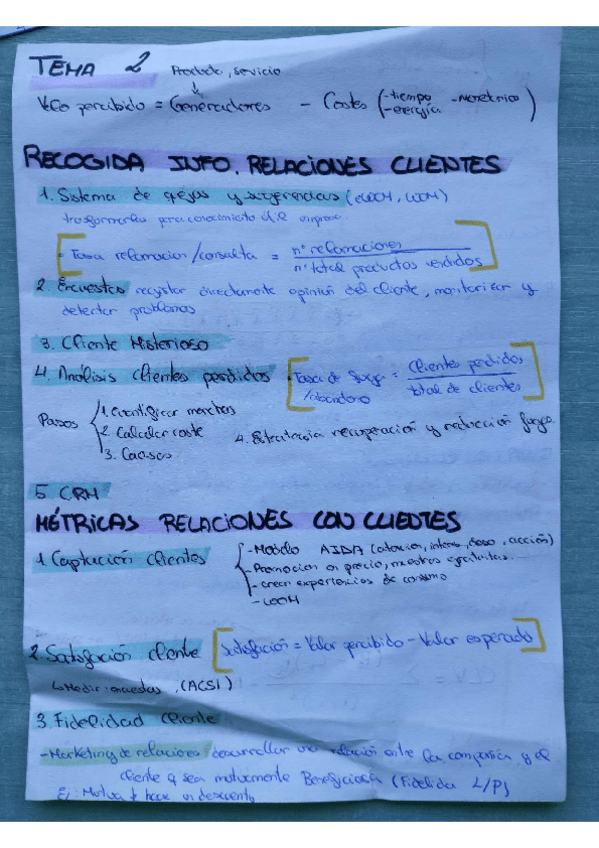 TEMA 2 Producto, servicio
Valo percibido = Generadores - Costes (-tiempo -monetario
-energía)
RECOGIDA INFO. RELACIONES CLIENTES
1. Sistema de quejas y sugerencias (eWOM, WOM)
trasformarlas para conocimiento de empresa.
· Tasa reclamacion/consulta = nº reclamaciones
nº total productos vendidos
2. Encuestas recgistar directamente opinión del cliente, monitorizar y
detectar problemas
3. Cliente Misterioso
4. Análisis clientes perdidos · Tasa de fuga = Clientes perdidos
/abandono total de clientes
Pasos 1. Cuantificar marchas
2. Calcular coste 4. Estrategia recuperación y reducción fuga.
3. Causas
5. CRM
MÉTRICAS RELACIONES CON CLIENTES
1. Captación clientes - Modelo AIDA (atencion, interes, deseo, acción)
- Promocion en precio, muestras gratuitas...
- crear experiencias de consumo
- WOM
2. Satisfación cliente Satisfación = Valor percibido - Valor esperado
Medir: encuestas, (ACSI)
3. Fidelidad cliente
- Marketing de relaciones desarrollar una relación entre la compañia y el
cliente q sea mutuamente Beneficiosa (Fidelida L/P)
Ej: Mutua te hace un descuento